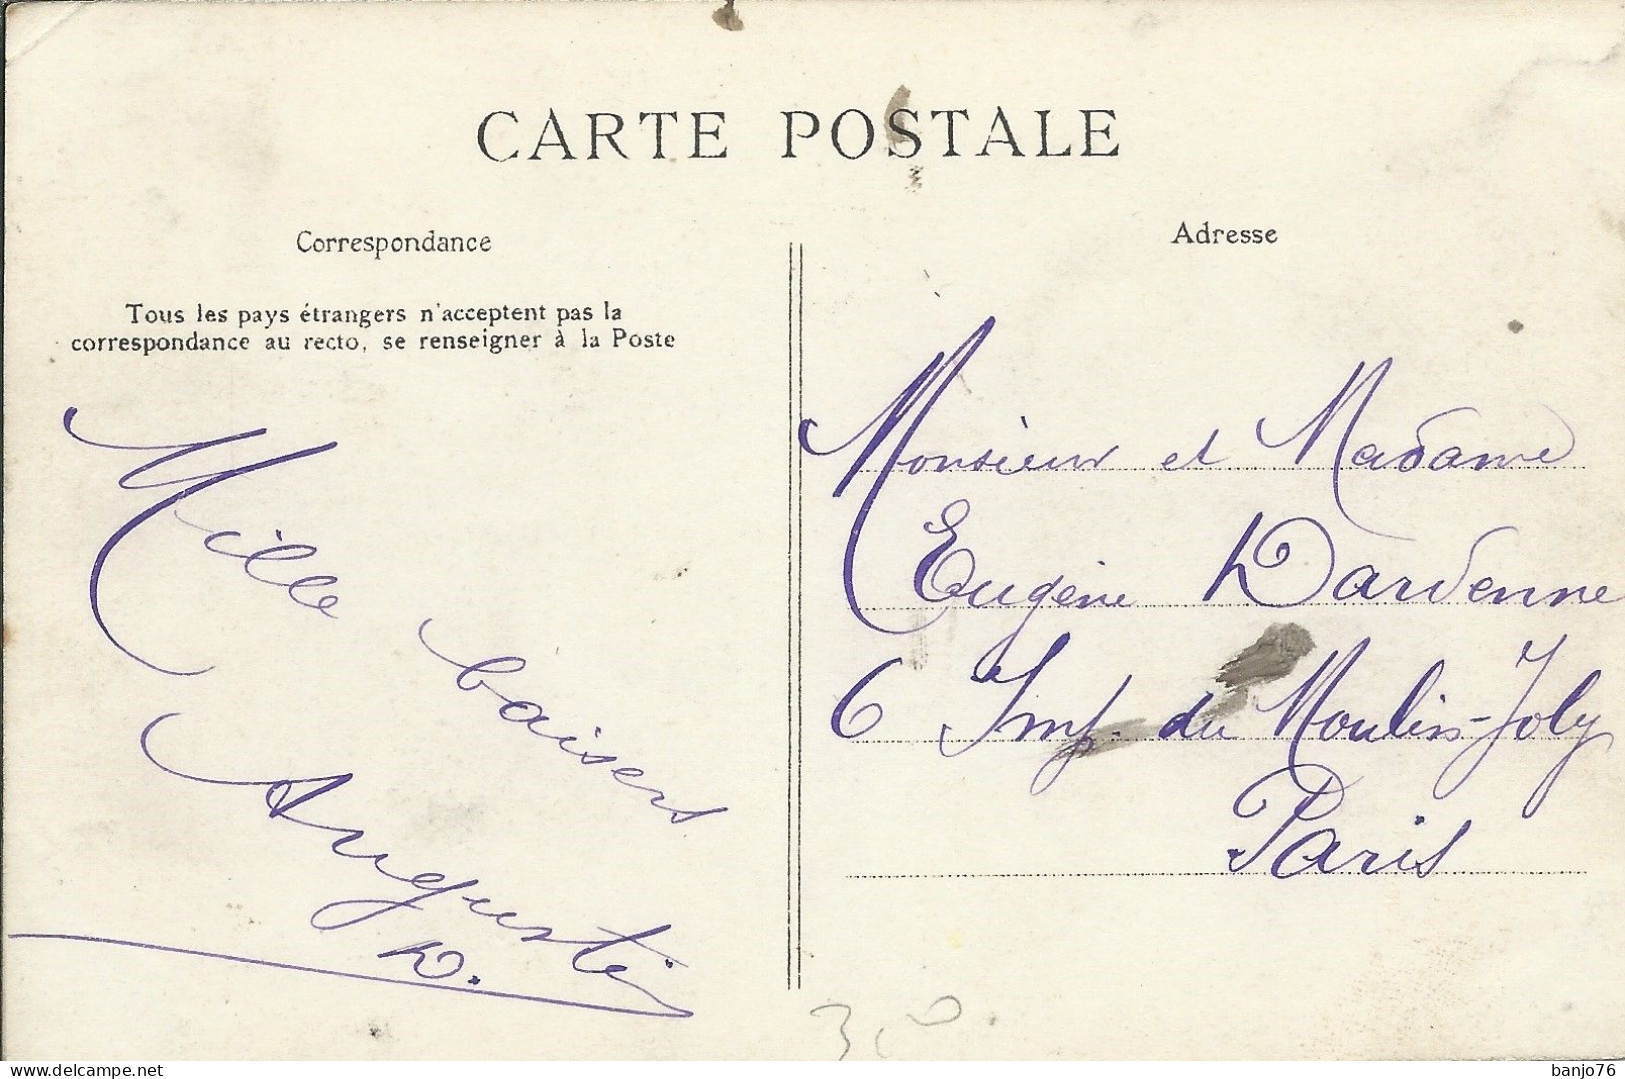 CARTE POSTALE
Correspondance
Tous les pays étrangers n'acceptent pas la
correspondance au recto, se renseigner à la Poste
Mille baisers
D.
Adresse
Monsieur et Madame
Eugène Dardenne
6 Imp. du Moulin-Joly
Paris
delcampe.net
banjo76